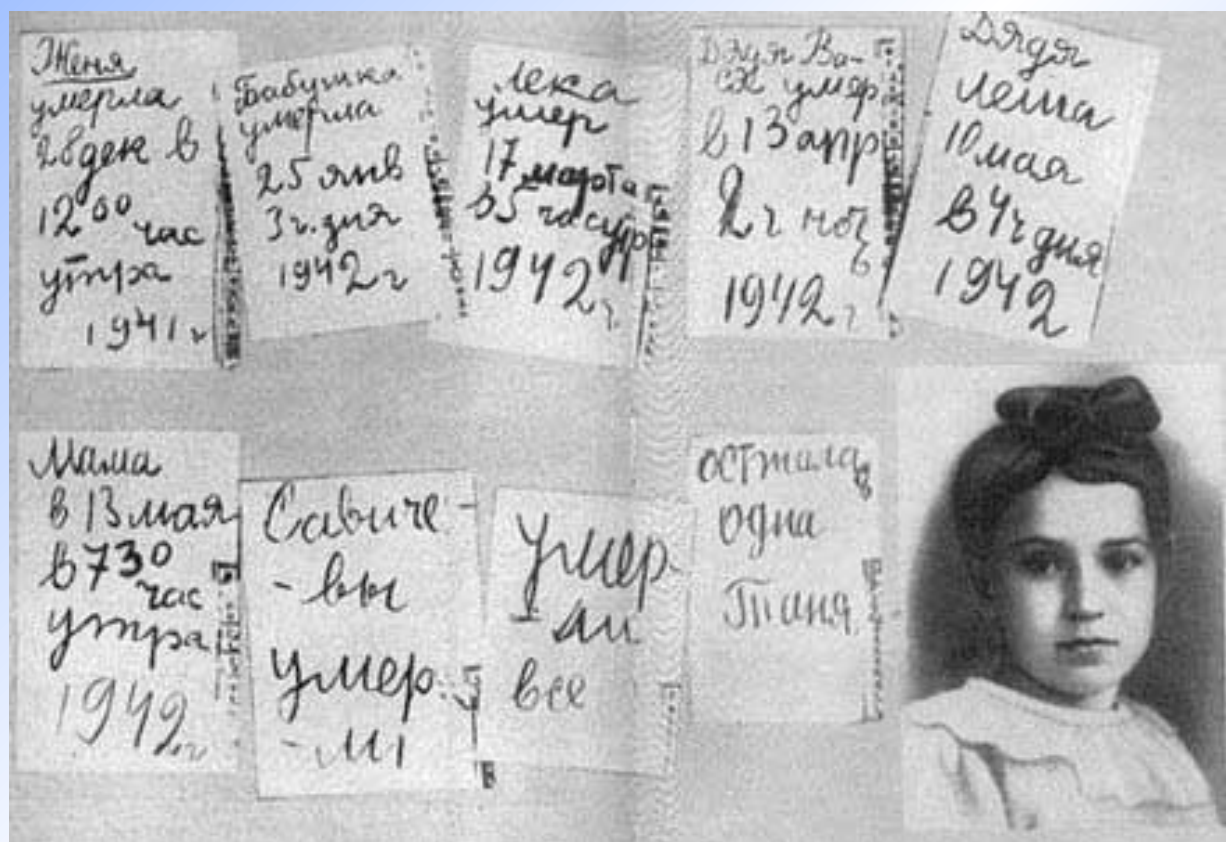 Женя
умерла
28 дек в
12 00 час
утра
1941 г
Бабушка
умерла
25 янв
3 ч. дня
1942 г
Лека
умер
17 марта
в 5 час утр
1942 г
Дядя Ва-
ся умер
в 13 апр
2 ч ноч
ь
1942 г
Дядя
Леша
10 мая
в 4 ч дня
1942
Мама
в 13 мая
в 7 30
час
утра
1942 г
Савиче-
-вы
умер-
-ли
умер-
-ли
все
осталась
одна
Таня